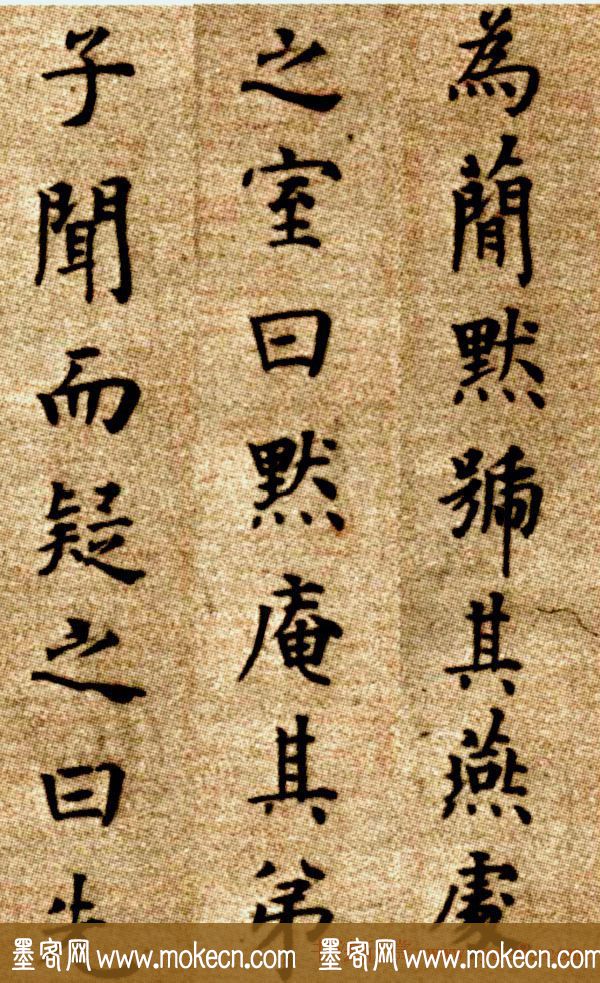 為蕳默號其燕處
之室曰默庵其弟
子聞而疑之曰先
墨客网 www.mokecn.com 墨客网 www.mokecn.com